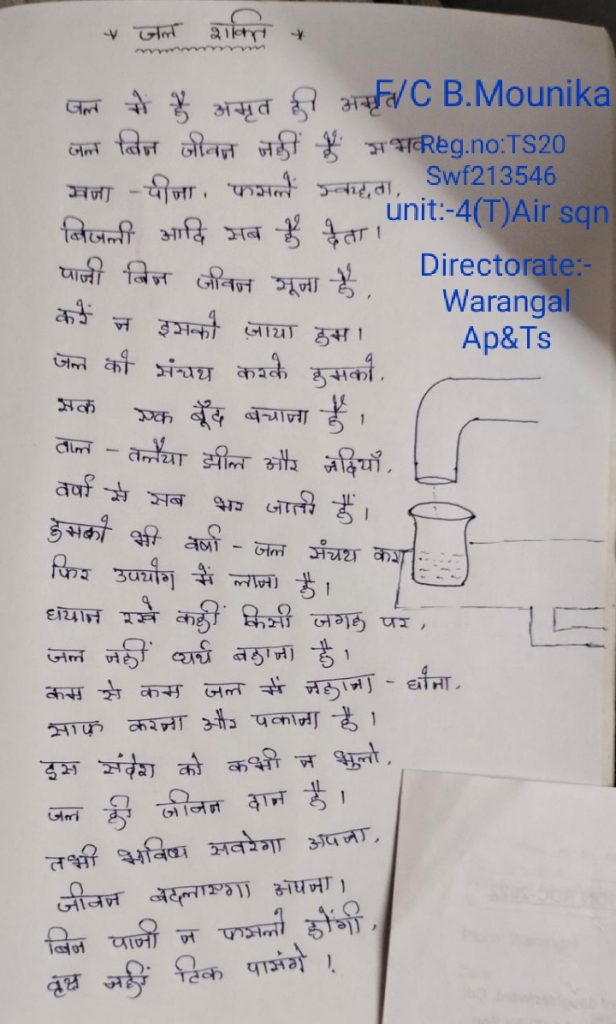 * जल शक्ति *
जल में है अमृत ही अमृत
जल बिन जीवन नहीं है सम्भव।
खना - पीना, फसलें स्वच्छता,
बिजली आदि सब है देता।
पानी बिन जीवन सूना है,
करें न इसको ज़ाया हम।
जल को संचय करके हमको,
एक एक बूँद बचाना है।
ताल - तलैया झील और नदियाँ,
वर्षा से सब भर जाती हैं।
हमको भी वर्षा - जल संचय कर
फिर उपयोग में लाना है।
धयान रखे कहीं किसी जगह पर,
जल नहीं व्यर्थ बहाना है।
कम से कम जल में नहाना - धोना,
साफ़ करना और पकाना है।
इस संदेश को कभी न भुलो,
जल ही जीवन दान है।
तभी भविष्य सवरेगा अपना,
जीवन बदलाएगा अपना।
बिन पानी न फसलो होंगी,
वृक्ष नहीं टिक पाएंगे!
F/C B.Mounika
Reg.no:TS20
Swf213546
unit:-4(T)Air sqn
Directorate:-
Warangal
Ap&Ts